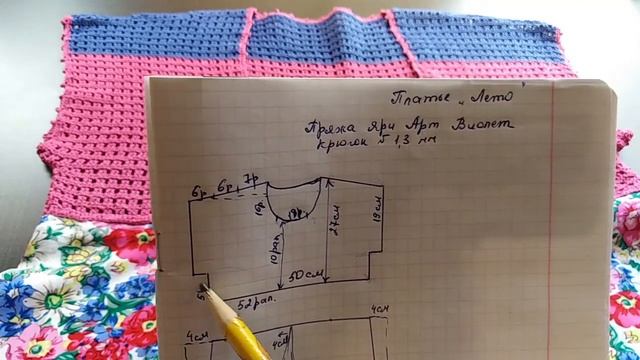 Платье „Лето"
Пряжа Яри Арт Виолет
крючок № 1,3 мм
6р 6р 7р
27см
19см
10рап
50см
52рап.
4см
4см
4см